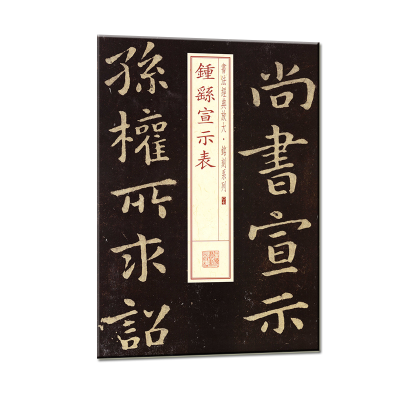 尚書宣示
書法經典放大·銘刻系列
鍾繇宣示表
孫權所求詔